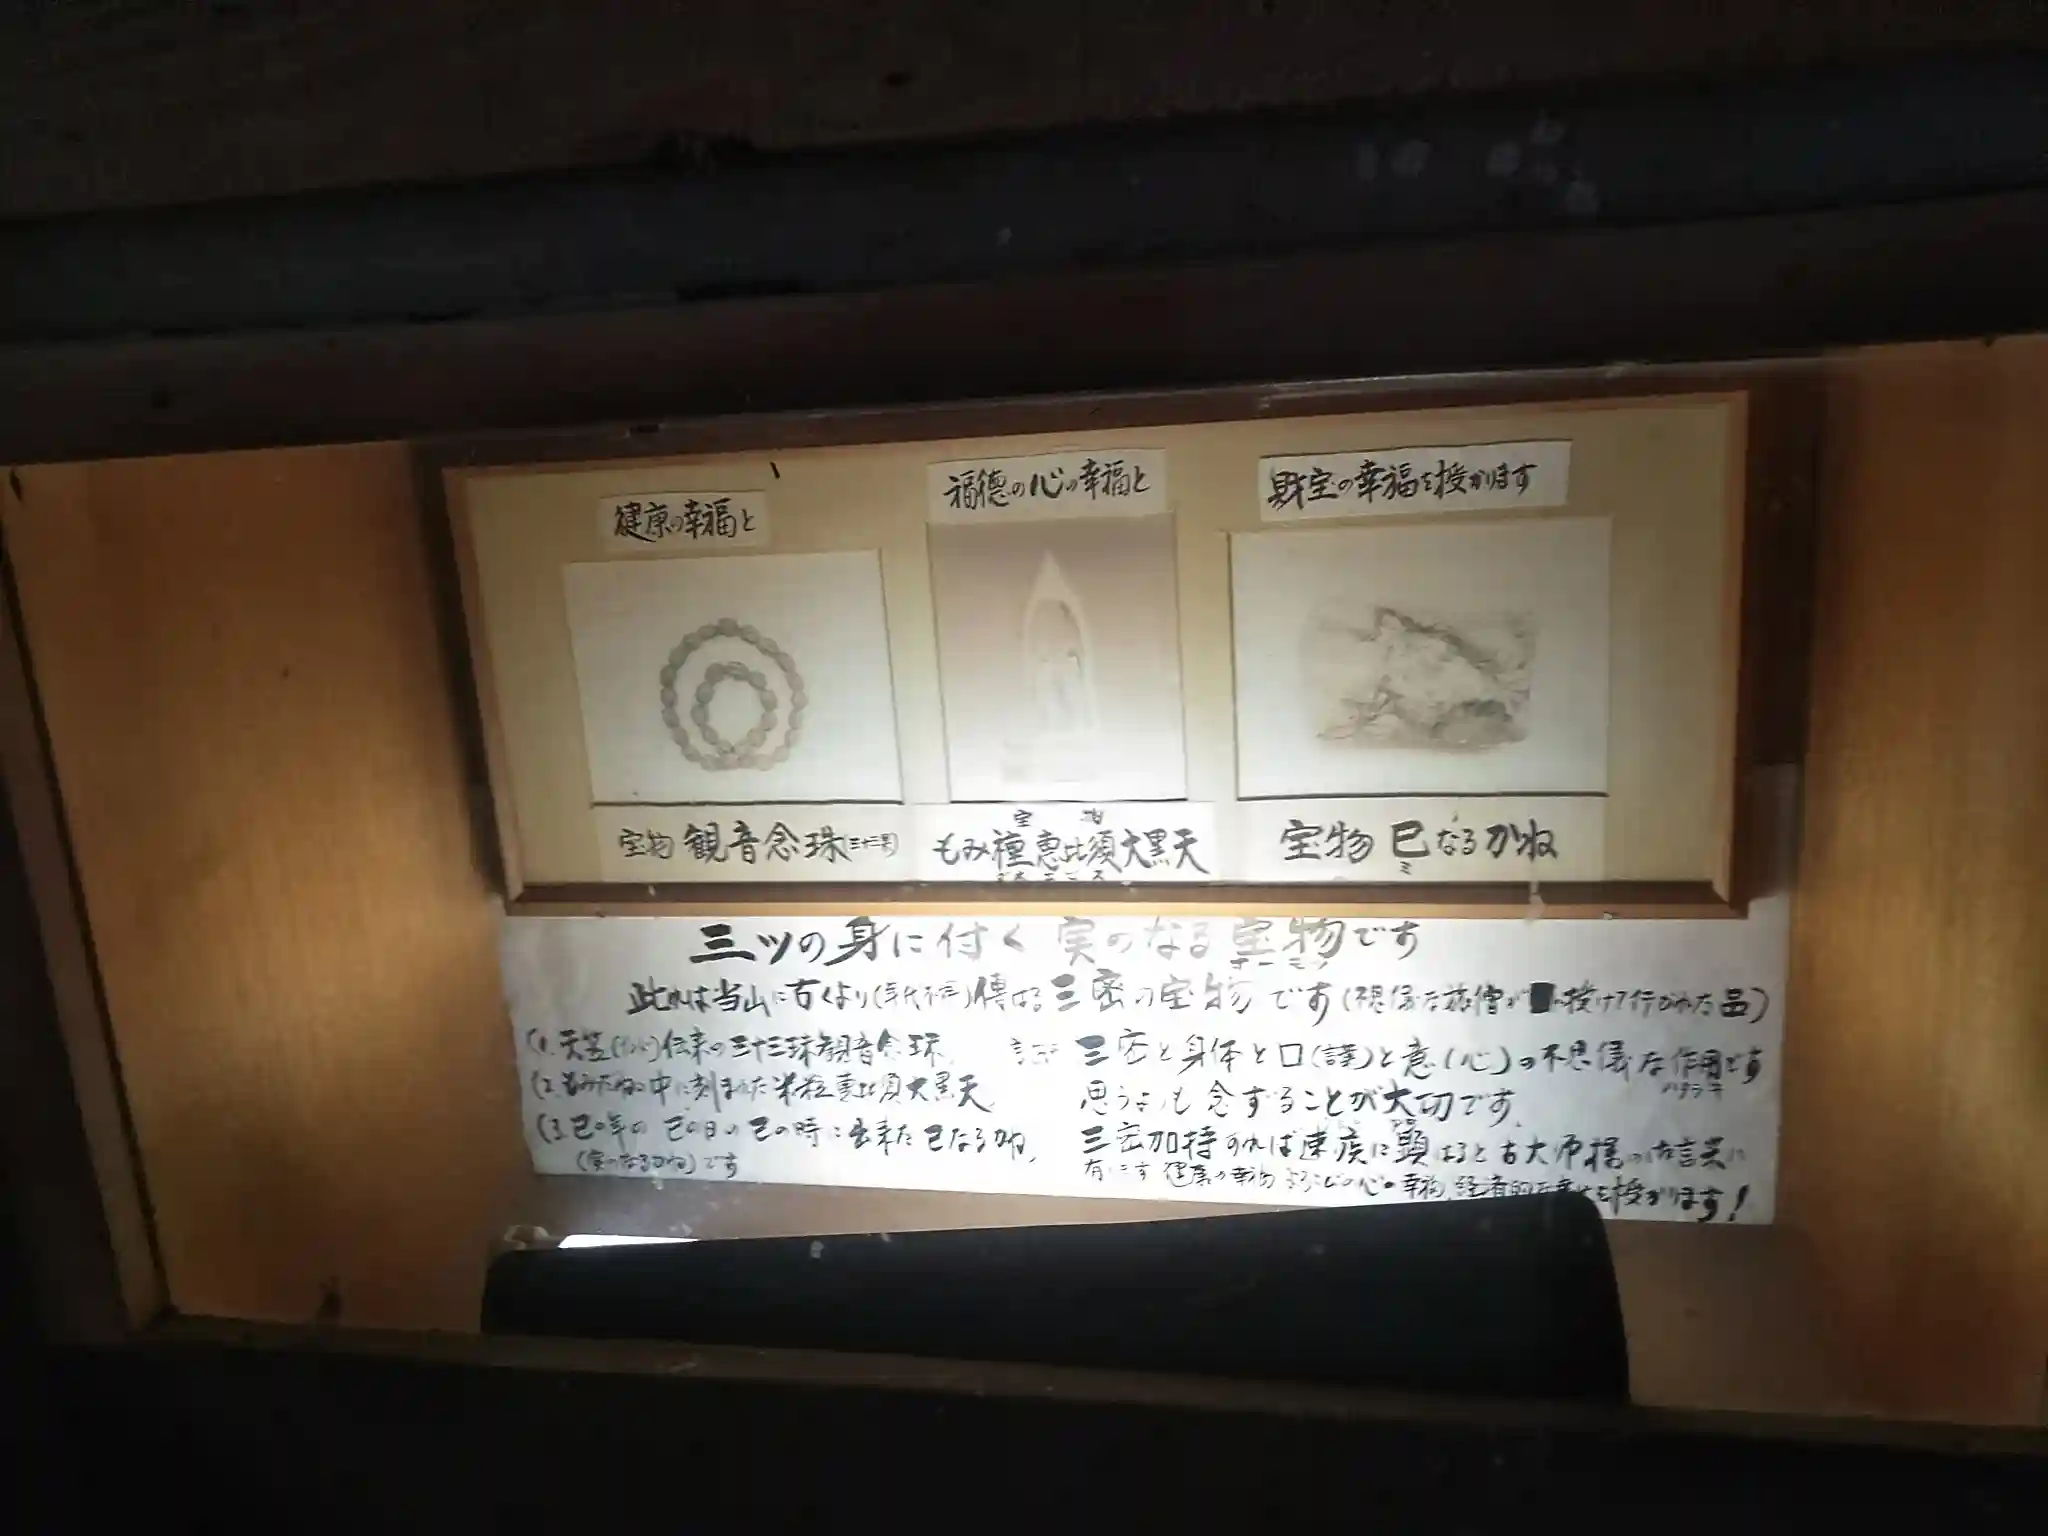 健康の幸福と
福徳の心の幸福と
財宝の幸福を授かります
宝物 観音念珠
宝物
もみ種恵比須大黒天
宝物 巳なるかね
ミ
三ツの身に付く 実のなる宝物です
此れは当山に古くより(年代不詳)傳はる三密の宝物です(不思儀な旅僧が 授けて行かれた品)
(1.天笠 伝来の三十三珠観音念珠、
(2.もみだねの中に刻まれた米粒恵比須大黒天、
(3.巳の年の巳の日の巳の時に出来た巳なるかね、
(実のなるかね)です
三密と身体と口(謹)と意(心)の不思儀な作用です
ハタラキ
思うよりも念ずることが大切です、
三密加持すれば速疾に顕はると古大师様の御言葉に
有ります 健康の幸福 よろこびの心の幸福、経済的な を授かります!